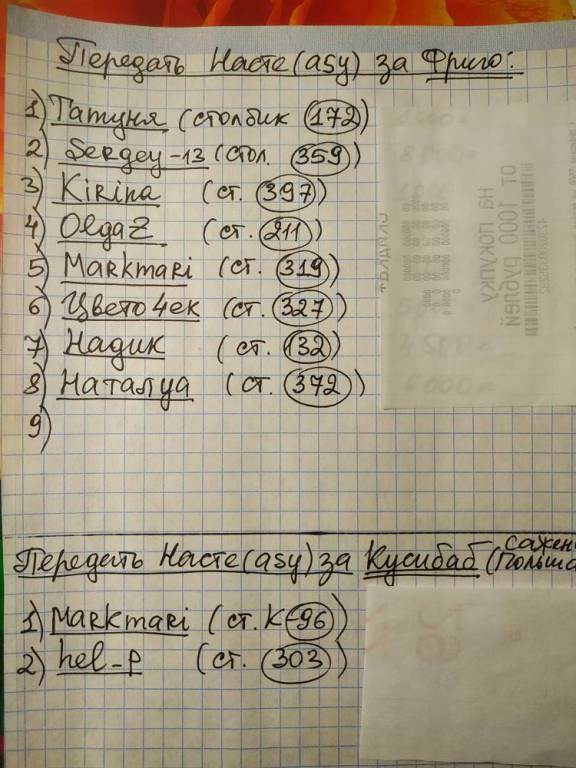 Передать Насте (asy) за Фриго:
1) Татуня (столбик 172)
2) Sergey-13 (стол. 359)
3) Kirina (ст. 397)
4) OlgaZ (ст. 211)
5) Markmari (ст. 319)
6) Цвето4ек (ст. 327)
7) Надик (ст. 132)
8) Наталуа (ст. 372)
9)
от 1000 рублей
на покупку
скидка
Передать Насте (asy) за Кусибаб (сажен
Польша
1) Markmari (ст. К-96)
2) hel-p (ст. 303)